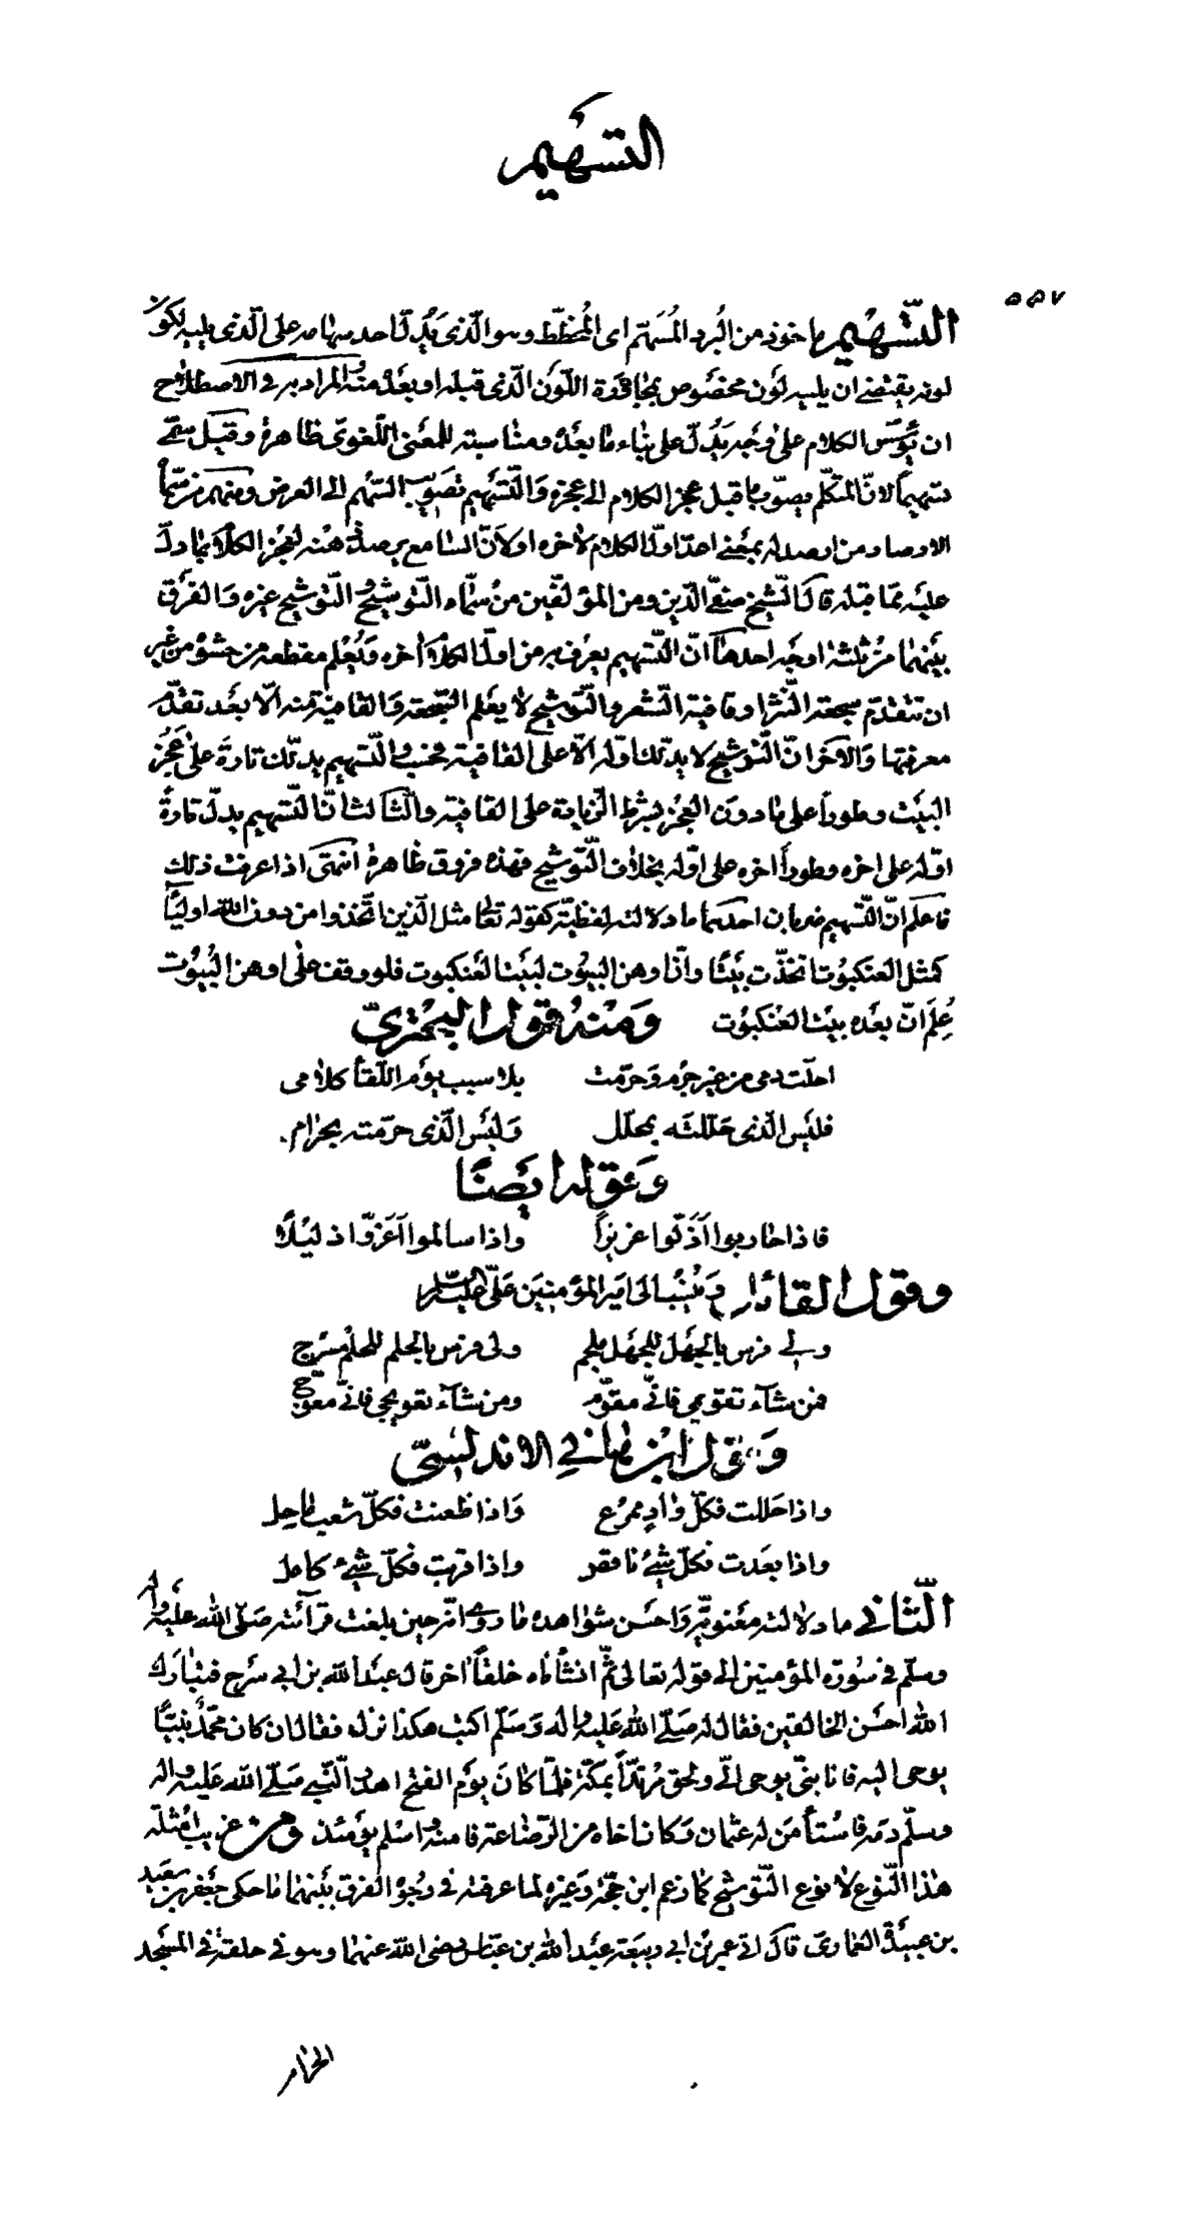 التسهيم
٥٥٧
التّسهيم ماخوذ من البُرد المُسَهّم اى المُخطّط وهو الّذى يَدُلّ احد سهامه على الّذى يليه لكون
لونه يقتضى ان يليه لَوْن مخصُوص بمجاورة اللّون الّذى قبله او بعدَهُ منهُ المراد به فى الاصطلاح
ان يُؤسّس الكلام على وجه يَدُلّ على بناء ما بعدَهُ ومناسبته للمعنى اللّغوى ظاهرة وقيل سمّى
تسهيماً لانّ المتكلّم يصوّب ما قبل عجز الكلام الى عجزه وَالتّسهيم تصويب السّهم الى الغرض ومنهم من سمّاه
الارصاد من ارصد له بمعنى اعدّ اوّل الكلام لاخره او لانّ السّامع يرصد ذهنه لعجز الكلام بما دلّ
عليه ممّا قبله قال الشّيخ صفىّ الدّين ومن المؤلّفين من سمّاه التّوشيح والتّوشيح غيره وَالفرق
بينهما من ثلثة اوجه احدها انّ التّسهيم يعرف به من اوّل الكلام اخره وَيُعلم مقطعه من حشوه من غير
ان تتقدّم سجعة النّثر او قافية الشّعر والتّوشيح لا يعلم السّجعة وَالقافية منه الّا بعد تقدّم
معرفتها وَالاخر انّ التّوشيح لا يدلّك اوّله الّا على القافية فحسب والتّسهيم يدلّك تارةَ على عَجُز
البيت وطوراً على مادون العجز بشرط الزّيادة على القافية والثّالث انّ التّسهيم يدلّ تارةً
اوّله على اخره وطوراً اخره على اوّله بخلاف التّوشيح فهذه فروق ظاهرة انتهى اذا عرفت ذلك
فاعلم انّ التّسهيم ضربان احدهما ما دلالته لفظيّة كقوله تعالى مثل الّذين اتّخذوا من دون اللّه اولياء
كمثل العنكبُوت اتخذَت بيتًا وانّ اوهن البيُوت لبيت العنكبوت فلو وقف على اوهن البيُوت
عُلِمَ انّ بعده بيت العنكبُوت وَمنهُ قول البحتريّ
احلّت دمى من غير جرم وَحرّمت بلا سبب يوم اللّقاء كلامى
فليس الّذى حَلّلته بمحلّل وَليس الّذى حرّمته بحرام
وَقوله ايضًا
فاذا حاربوا اَذَلّوا عزيزاً واذا سالموا اَعَزّوا ذليلًا
وقول القائل وَيُنسَب الى امير المؤمنين عَلىّ عليه السّلام
ولى فرس بالجهل للجهل ملجم ولى فرس بالحلم للحلم مسرج
فمن شآء تقويمى فانّى مقوّم ومن شآء تعويجى فانّى معوّج
وَقول ابن هانى الاندلسىّ
واذا حَللت فكلّ وادٍ ممرع وَاذا ظعنت فكلّ شعب ماحل
واذا بَعَدت فكلّ شىء ناقص واذا قربت فكلّ شىء كامل
الثّانى ما دلالته معنويّة وَاحسن شواهده ما روى انّه حين بلغت قرآئته صَلّى اللّه عليه واله
وسلّم فى سُورة المؤمنين الى قوله تعالى ثمّ انشأناه خلقاً اخر قال عبد اللّه بن ابى سَرح فتبارك
اللّه احسن الخالقين فقال له صَلّى اللّه عليه واله وَسَلّم اكتب هكذا نزل فقال ان كان محمّدٌ نبيًّا
يوحى اليه فانا نبىّ يوحى الىّ ولحق مُرتدّاً بمكّة فلمّا كانَ يوم الفتح اهدر النّبى صَلّى اللّه عليه واله
وسلّم دمه فاستأمَن له عثمان وَكان اخاه من الرّضاعة فامنه واسلم يومئذ ومن غريب امثلة
هذا النّوع لا نوع التّوشيح كما زعم ابن حجّة وَغيره لما عرفته فى وجوه الفرق بينهما ما حكى جعفر بن سعيد
بن عبيدة العمارى قال اتى عمر بن ابى ربيعة عبد اللّه بن عبّاس رضى اللّه عنهما وهو فى حلقة فى المسجد
الحرام